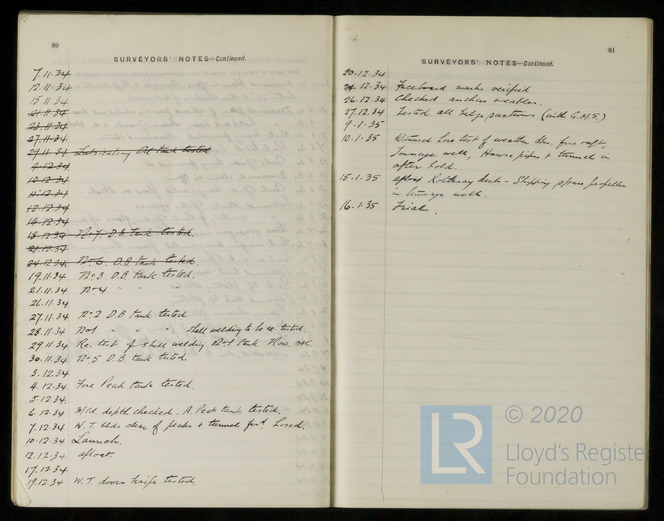 80
SURVEYORS' NOTES—Continued.
7.11.34
12.11.34
15.11.34
21.11.34
23.11.34
27.11.34
29.11.34 Lubricating Oil tank tested
4.12.34
10.12.34
11.12.34
12.12.34
14.12.34
18.12.34 No 7 D.B. Tank tested.
21.12.34
24.12.34 No 6 D.B. tank tested.
19.11.34 No 3 D.B. tank tested.
21.11.34 No 4 " " "
26.11.34
27.11.34 No 2 D.B. tank tested
28.11.34 No 1 " " " Shell welding to be re tested.
29.11.34 Re. test of shell welding No 1 tank
30.11.34 No 5 D.B. tank tested
3.12.34
4.12.34 Fore Peak tank tested.
5.12.34
6.12.34 Mld depth checked. A. Peak tank tested.
7.12.34 W.T. bhds clear of peaks + tunnel hosed.
10.12.34 Launch.
12.12.34 afloat.
17.12.34
19.12.34 W.T. doors knife tested
81
SURVEYORS' NOTES—Continued.
20.12.34
24.12.34 Freeboard marks verified
26.12.34 Checked anchors + cables.
27.12.34 Tested all (with G.M.S)
9.1.35
10.1.35 Witnessed hose test of weather
Tonnage well, Hawse pipes + tunnel in
after hold.
15.1.35 afloat Rothesay dock - Shipping spare propeller
in tonnage well.
16.1.35 Trial.
LR
© 2020
Lloyd's Register
Foundation